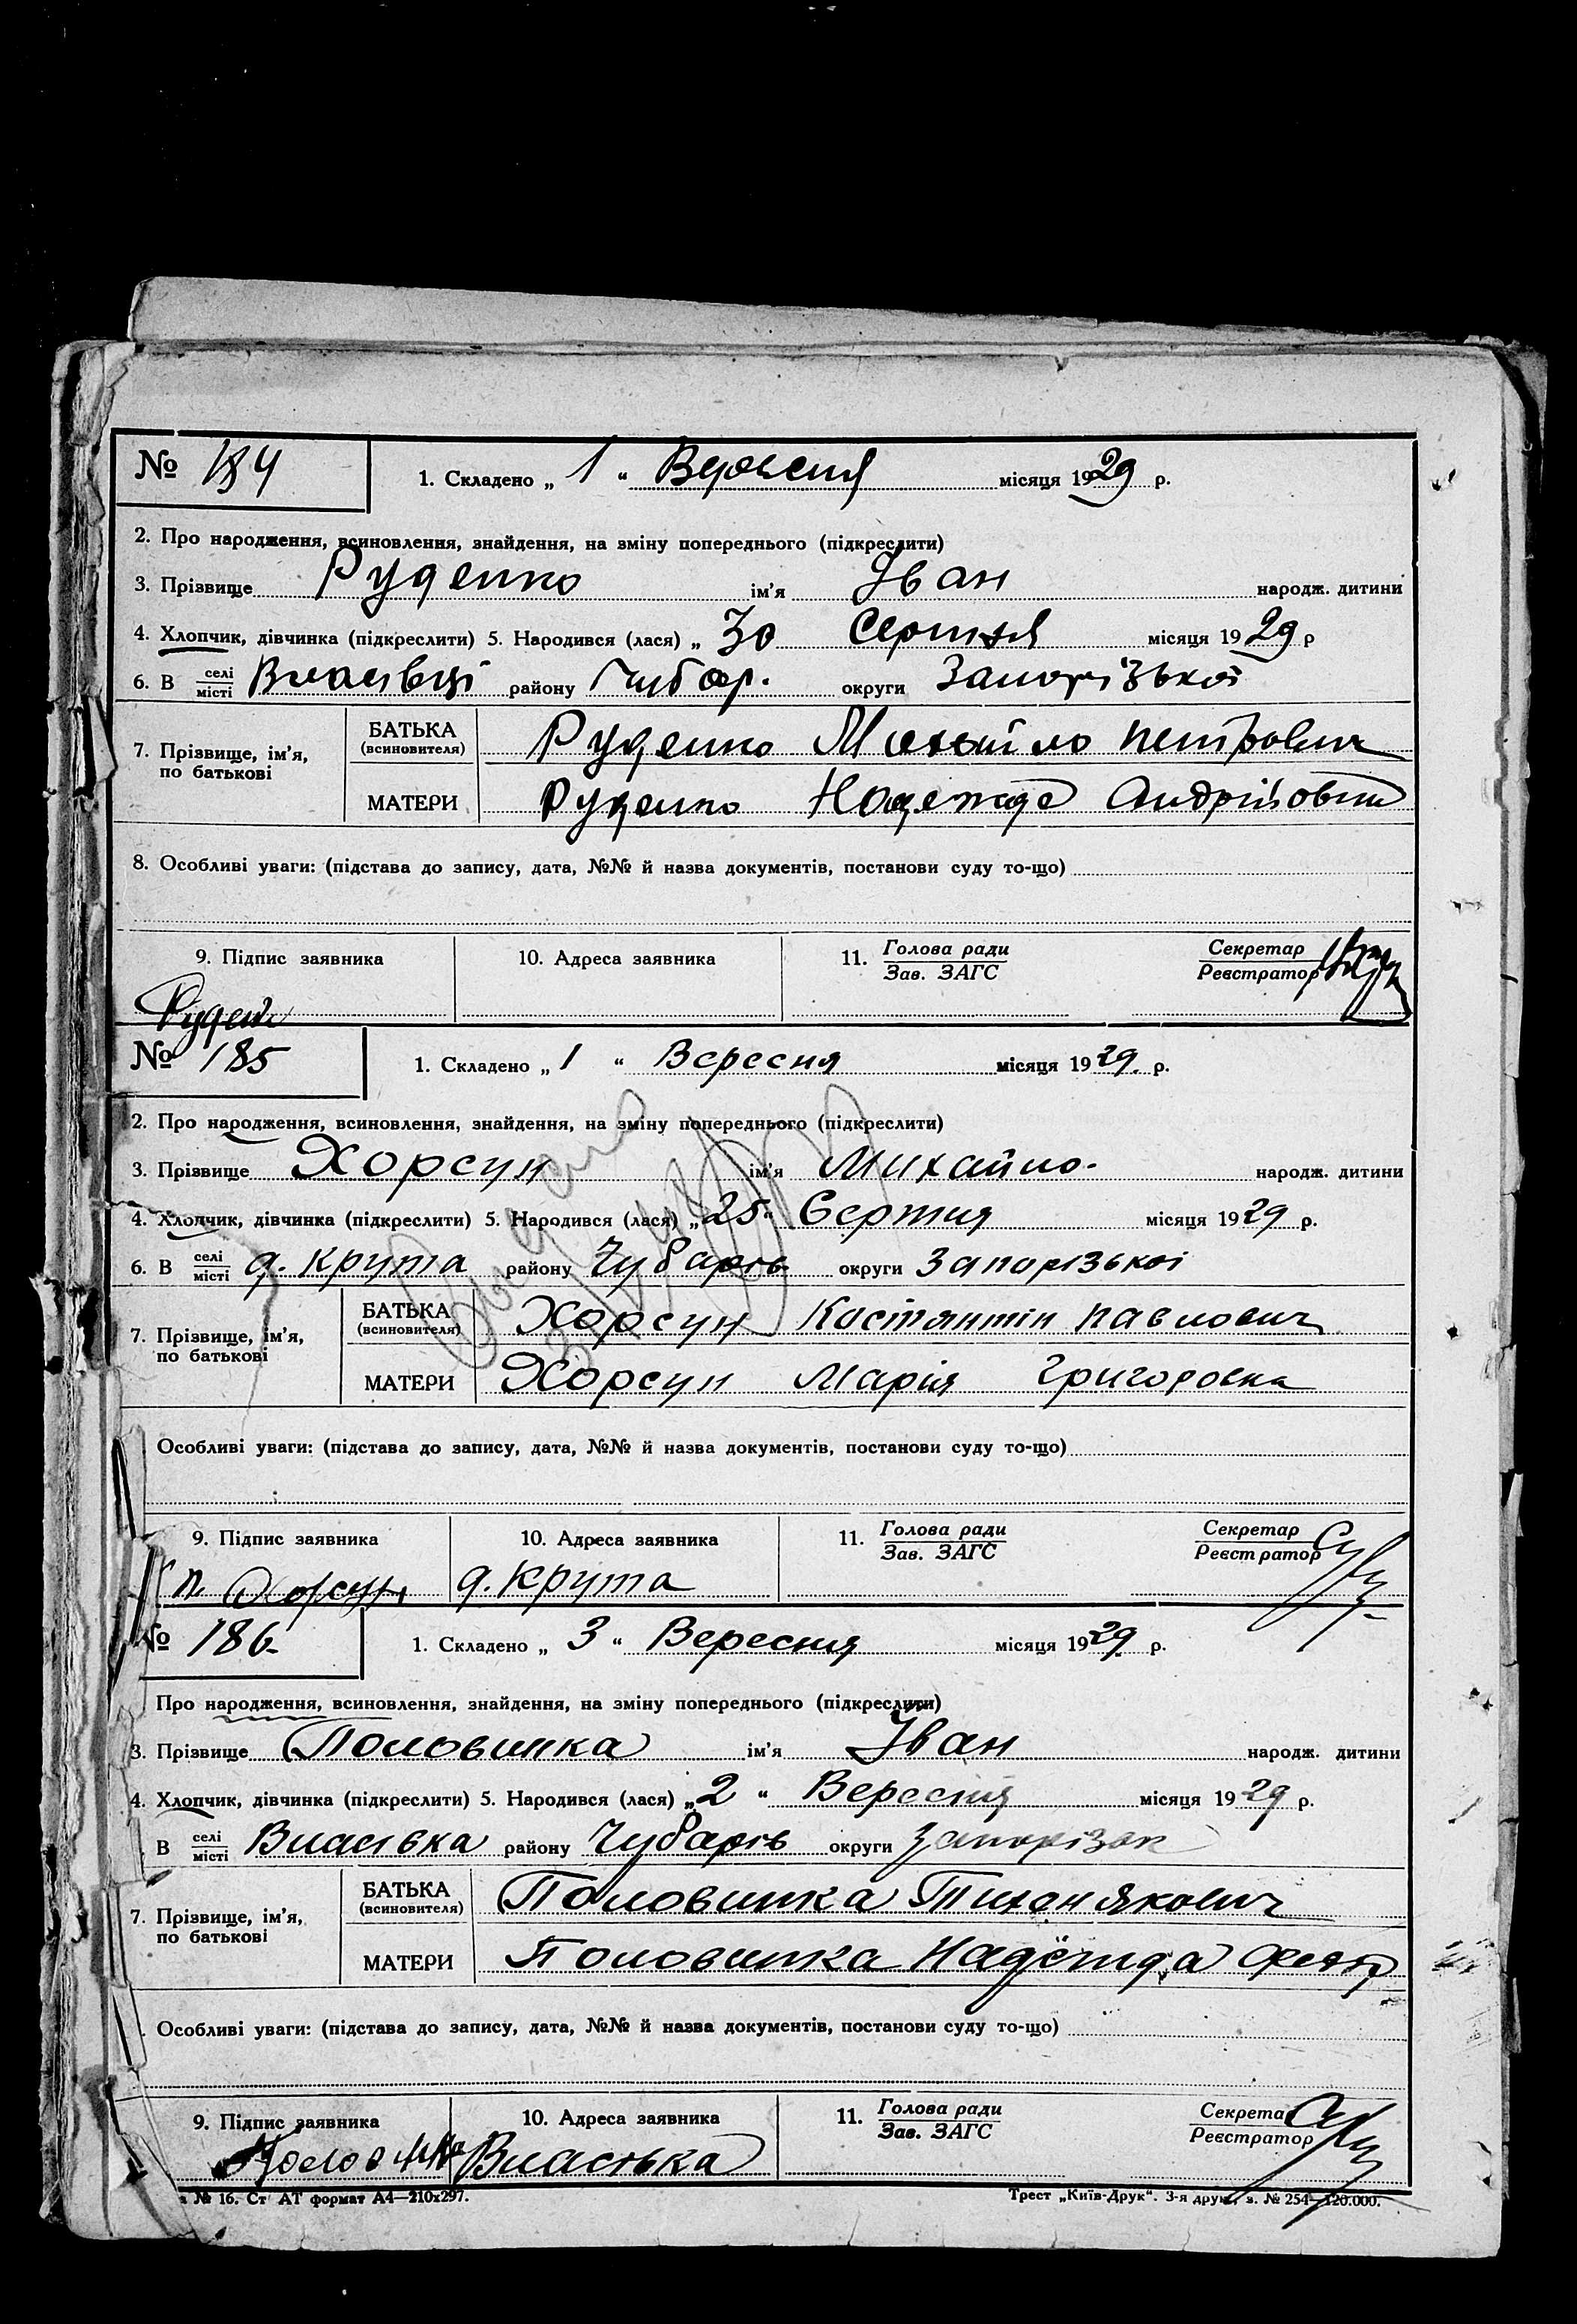 № 184 1. Складено „ 1 “ Вересня місяця 1929 р.
2. Про народження, всиновлення, знайдення, на зміну попереднього (підкреслити)
3. Прізвище Руденко ім'я Іван народж. дитини
4. Хлопчик, дівчинка (підкреслити) 5. Народився (лася) „ 30 Серпня місяця 1929 р
6. В селі місті Власівці району Чубар. округи Запорізької
7. Прізвище, ім'я, по батькові БАТЬКА (всиновителя) Руденко Михайло Петрович
МАТЕРИ Руденко Надежда Андрійовна
8. Особливі уваги: (підстава до запису, дата, №№ й назва документів, постанови суду то-що)
9. Підпис заявника 10. Адреса заявника 11. Голова ради Зав. ЗАГС Секретар Реєстратор
Руден
№ 185 1. Складено „ 1 “ Вересня місяця 1929. р.
2. Про народження, всиновлення, знайдення, на зміну попереднього (підкреслити)
3. Прізвище Хорсун ім'я Михайло. народж. дитини
4. Хлопчик, дівчинка (підкреслити) 5. Народився (лася) „ 25 “ Серпня місяця 1929 р.
6. В селі місті д. Крута району Чубарів округи Запорізької
7. Прізвище, ім'я, по батькові БАТЬКА (всиновителя) Хорсун Костянтін Павлович
МАТЕРИ Хорсун Марія Григоровна
Особливі уваги: (підстава до запису, дата, №№ й назва документів, постанови суду то-що)
9. Підпис заявника 10. Адреса заявника 11. Голова ради Зав. ЗАГС Секретар Реєстратор
Хорсун д. Крута
№ 186 1. Складено „ 3 “ Вересня місяця 1929 р.
Про народження, всиновлення, знайдення, на зміну попереднього (підкреслити)
3. Прізвище Половинка ім'я Іван народж. дитини
4. Хлопчик, дівчинка (підкреслити) 5. Народився (лася) „ 2 “ Вересня місяця 1929 р.
В селі місті Власівка району Чубарів округи Запорізьк
7. Прізвище, ім'я, по батькові БАТЬКА (всиновителя) Половинка Тихон Якович
МАТЕРИ Половинка Надежда
Особливі уваги: (підстава до запису, дата, №№ й назва документів, постанови суду то-що)
9. Підпис заявника 10. Адреса заявника 11. Голова ради Зав. ЗАГС Секретар Реєстратор
Половинка Власівка
№ 16. Ст АТ формат А4—210х297. Трест „Київ-Друк“. 3-я друк., з. № 254—120.000.